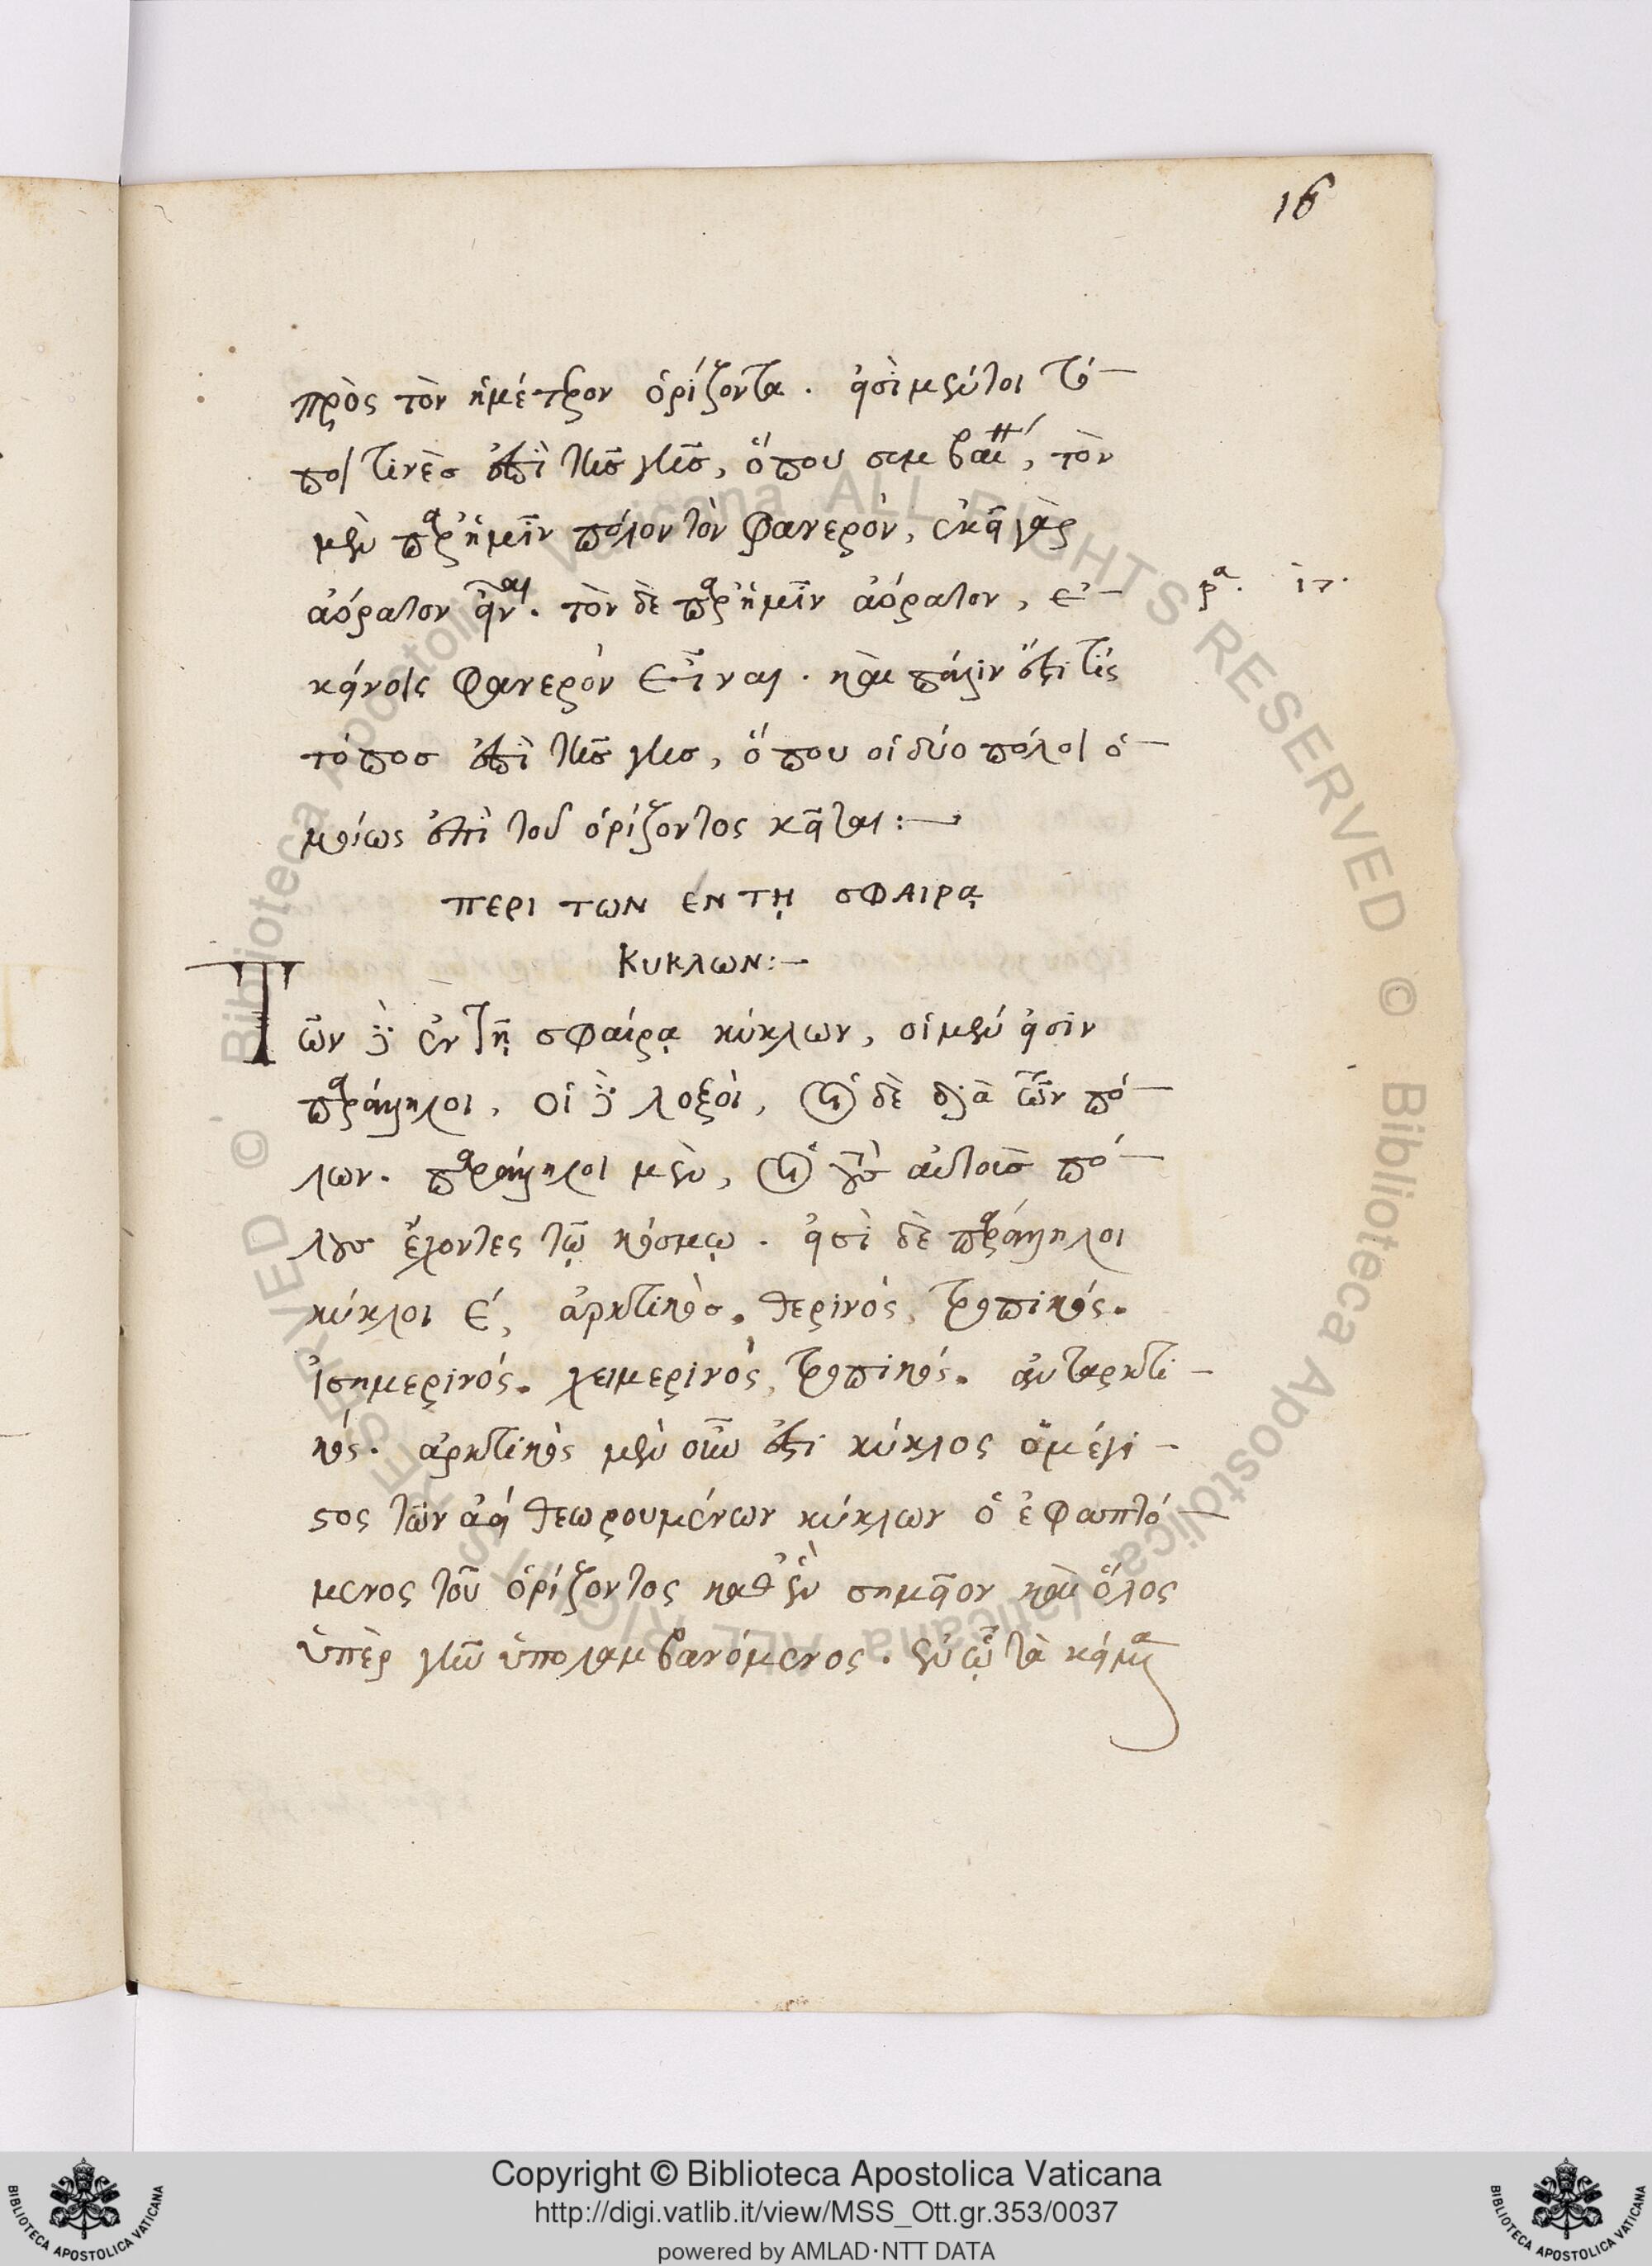 16
πρὸς τὸν ἡμέτερον ὁρίζοντα. εἰσὶ μέντοι τό-
ποι τινὲς ἐπὶ τῆς γῆς, ὅπου συμβαί, τὸν
μὲν παρ' ἡμῖν πόλον τὸν φανερὸν, ἐκεῖ γὰρ
ἀόρατον εἶναι. τὸν δὲ παρ' ἡμῖν ἀόρατον, ἐ-
κείνοις φανερὸν εἶναι. καὶ πάλιν ἔστι τίς
τόπος ἐπὶ τῆς γῆς, ὅπου οἱ δύο πόλοι ὁ-
μοίως ἐπὶ τοῦ ὁρίζοντος κεῖται:—
ΠΕΡΙ ΤΩΝ ΕΝ Τῌ ΣΦΑΙΡᾼ
ΚΥΚΛΩΝ:—
Τῶν δὲ ἐν τῇ σφαίρᾳ κύκλων, οἱ μέν εἰσιν
παράλληλοι, οἱ δὲ λοξοὶ, οἱ δὲ διὰ τῶν πό-
λων. παράλληλοι μὲν, οἱ τοὺς αὐτοὺς πό-
λους ἔχοντες τῷ κόσμῳ. εἰσὶ δὲ παράλληλοι
κύκλοι ε΄, ἀρκτικὸς. θερινὸς, τροπικός.
ἰσημερινός. χειμερινὸς, τροπικός. ἀνταρκτι-
κός. ἀρκτικὸς μὲν οὖν ἐστι κύκλος ὁ μέγι-
στος τῶν ἀεὶ θεωρουμένων κύκλων ὁ ἐφαπτό-
μενος τοῦ ὁρίζοντος καθ' ἓν σημεῖον καὶ ὅλος
ὑπὲρ γῆν ὑπολαμβανόμενος. ἐν ᾧ τὰ κείμενα
Copyright © Biblioteca Apostolica Vaticana
http://digi.vatlib.it/view/MSS_Ott.gr.353/0037
powered by AMLAD·NTT DATA
BIBLIOTECA APOSTOLICA VATICANA
BIBLIOTECA APOSTOLICA VATICANA
© Biblioteca Apostolica Vaticana ALL RIGHTS RESERVED © Biblioteca Apostolica Vaticana ALL RIGHTS RESERVED